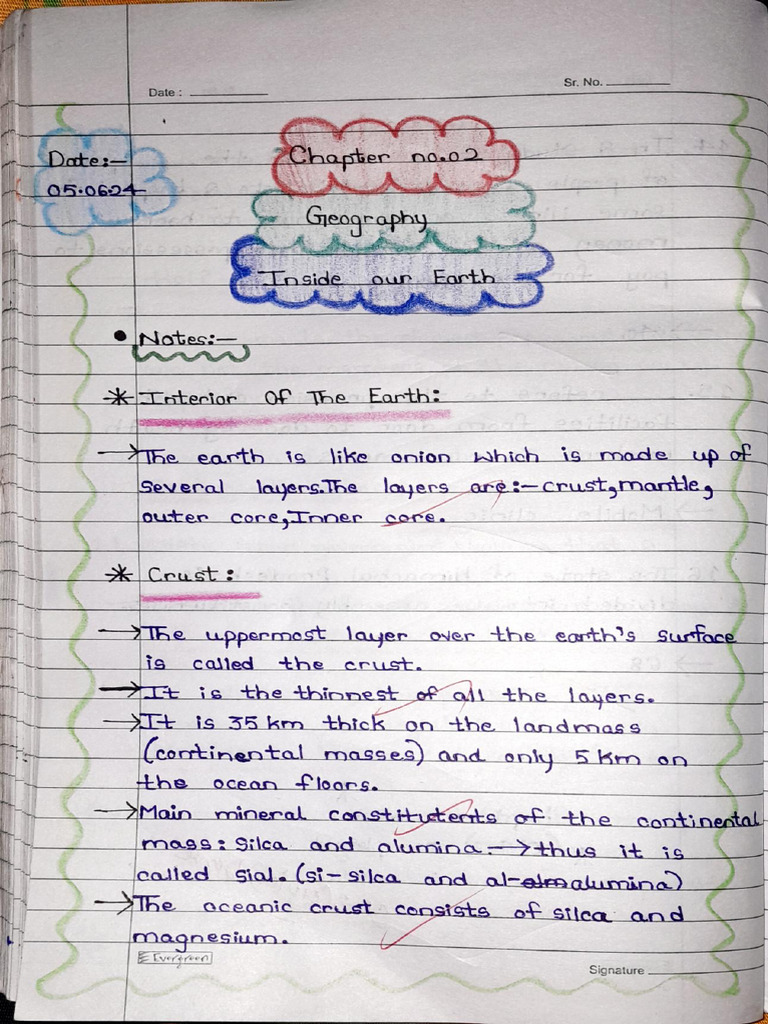 Date :
Sr. No.
Date:-
05.06.24
Chapter no.02
Geography
Inside our Earth
• Notes:-
* Interior Of The Earth:
→ The earth is like onion which is made up of
several layers.The layers are:- crust,mantle,
outer core,Inner core.
* Crust:
→ The uppermost layer over the earth's surface
is called the crust.
→ It is the thinnest of all the layers.
→ It is 35 km thick on the landmass
(continental masses) and only 5 km on
the ocean floors.
→ Main mineral constitutents of the continental
mass: Silca and alumina.→ thus it is
called sial. (si- silca and al- alumina)
→ The oceanic crust consists of silca and
magnesium.
Evergreen
Signature